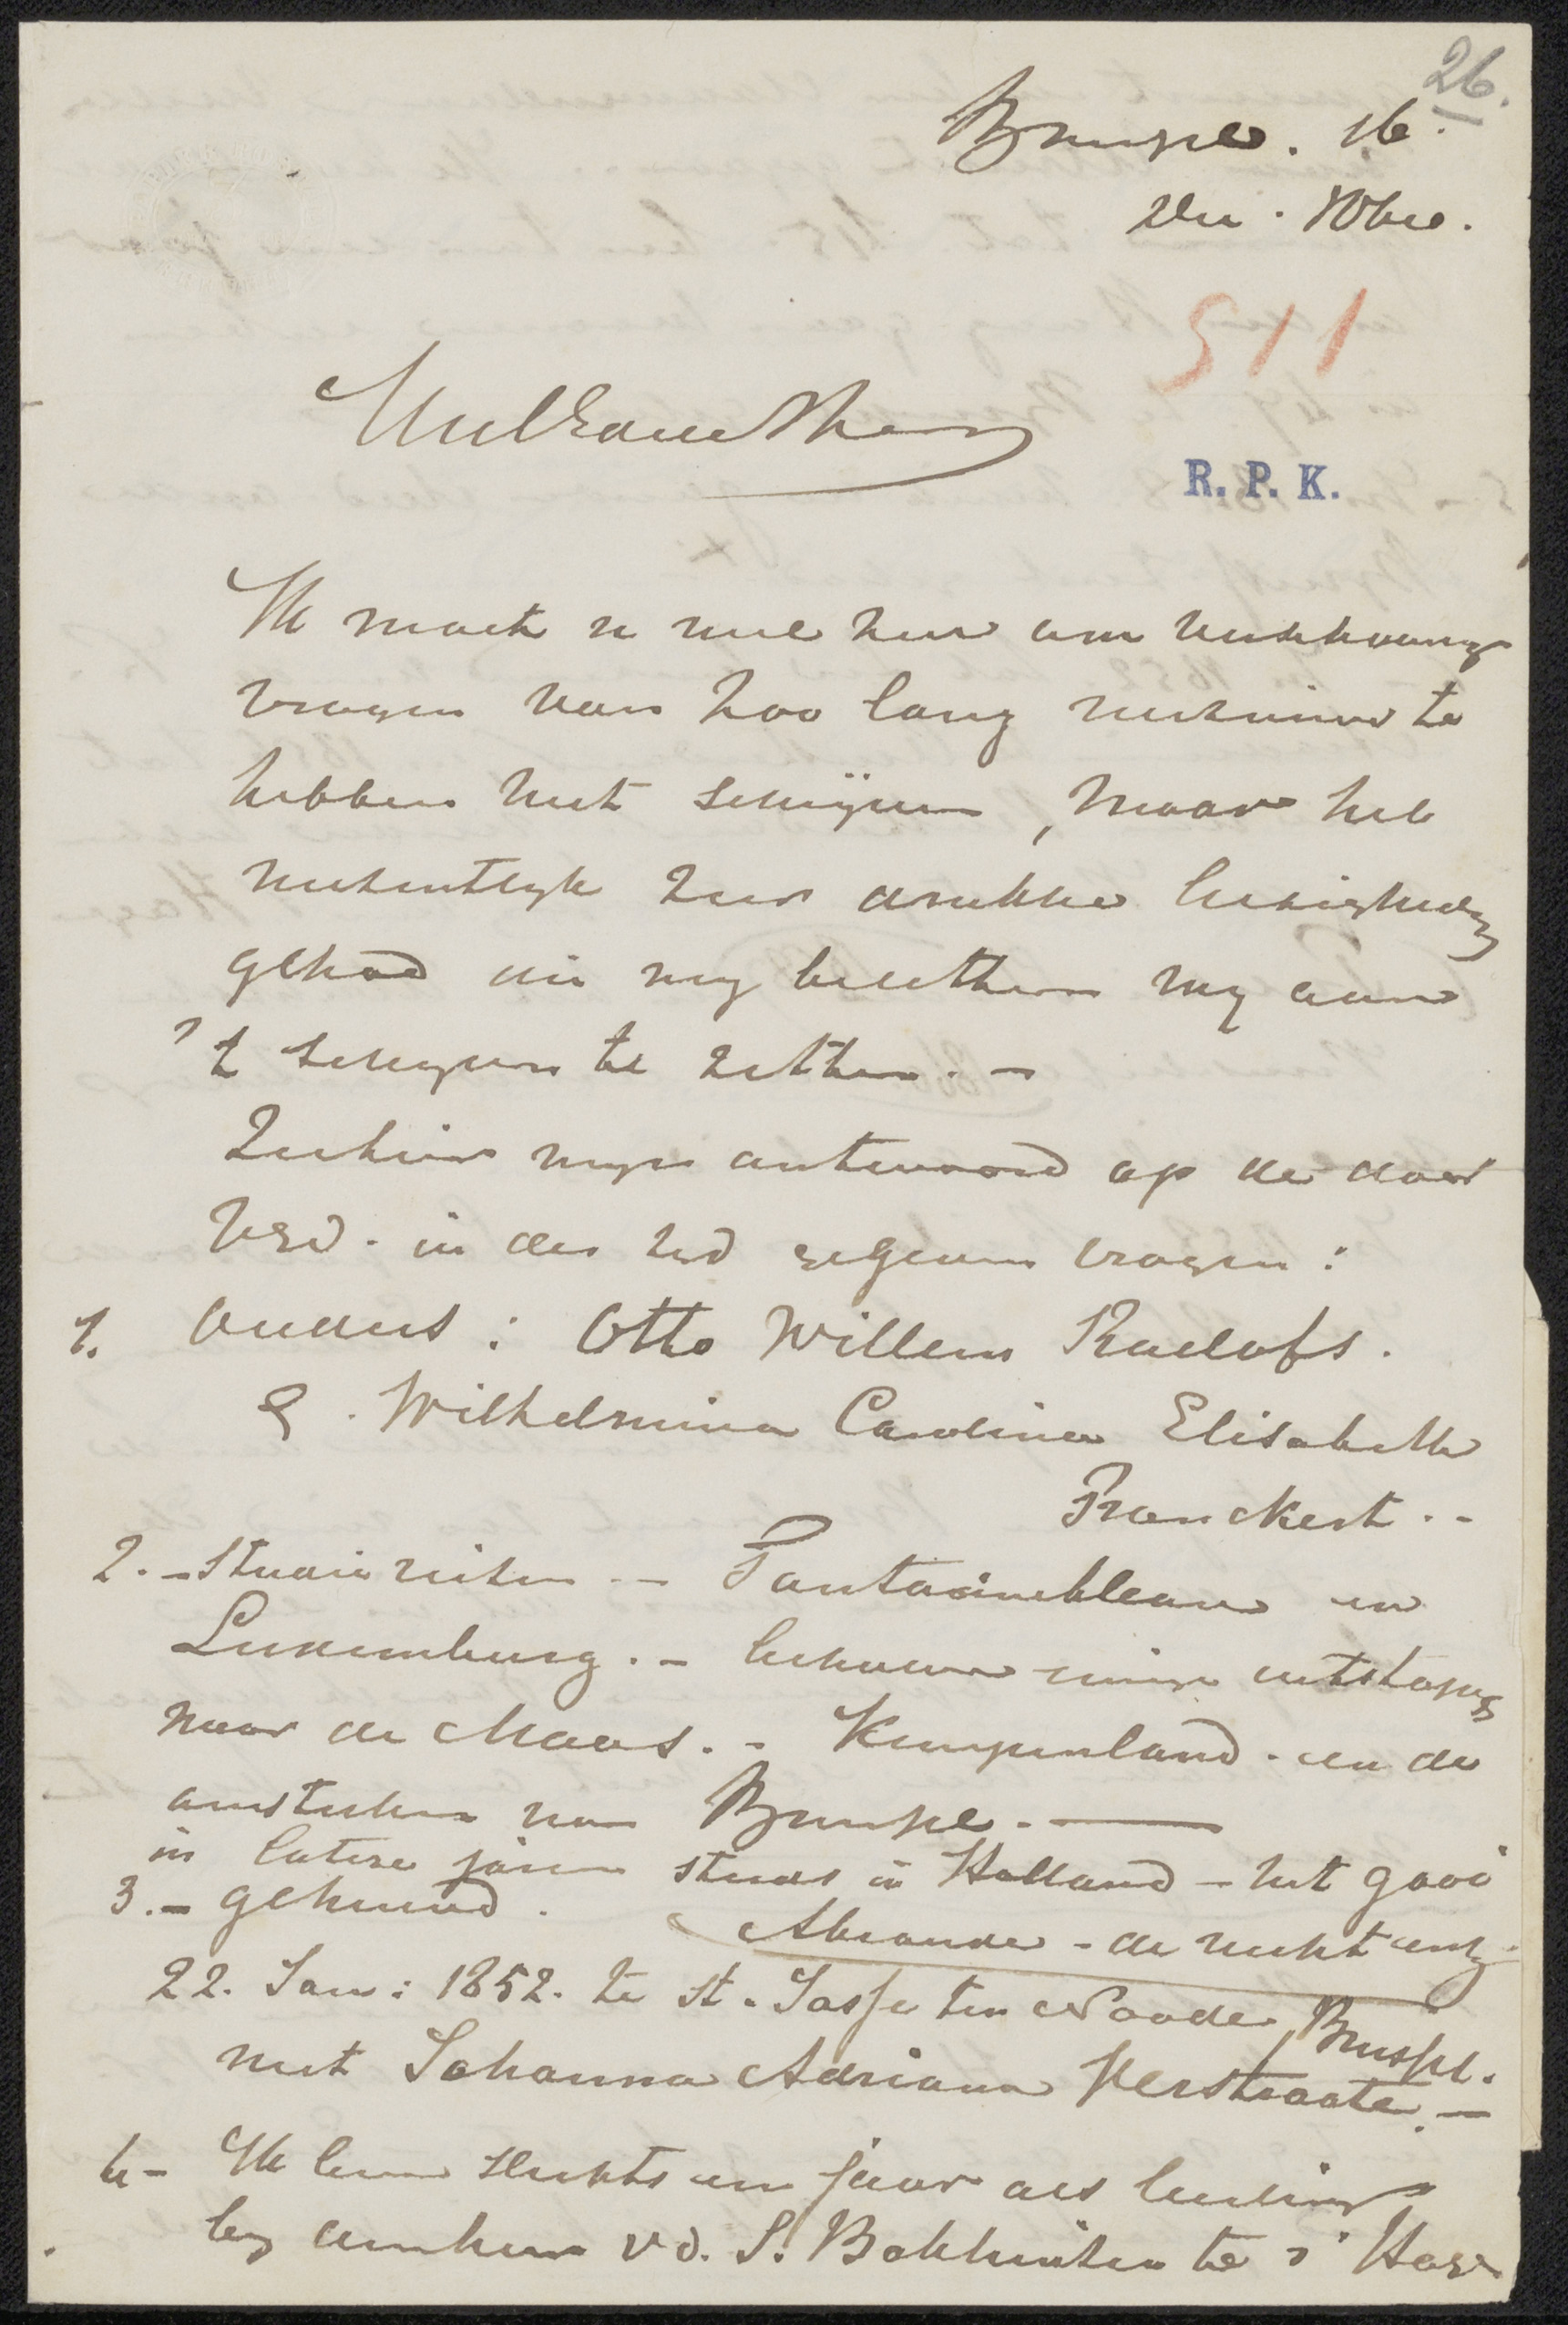 26.
Brussel. 16.
Dec. 10bre.
511
WelEdele Heer
R. P. K.
Ik moet u wel zeer om verschooning
vragen van zoo lang verzuimd te
hebben met schrijven, maar heb
wezentlyk zeer drukke bezigheden
gehad die my beletten my aan
't schryven te zetten. —
Zeehier myn antwoord op de door
UEd. in der tyd gegeven vragen:
1. Ouders: Otto Willem Roelofs.
& . Wilhelmina Carolina Elisabeth
Franckert . -
2. - Studie reizen — Fontainebleau en
Luxemburg. - behalve eenige uitstapjes
naar de Maas. - Kempenland. en de
omstreken van Brussel. —
in latere jaren steeds in Holland - het gooi
Abcoude - de vecht enz.
3. - gehuwd.
22. Jan: 1852. te St. Josse ten Noode, Brussel.
met Johanna Adriana Verstraate. —
4 - Ik ben slechts een jaar als leerling
by v.d. S. Bakhuizen te s' Hage